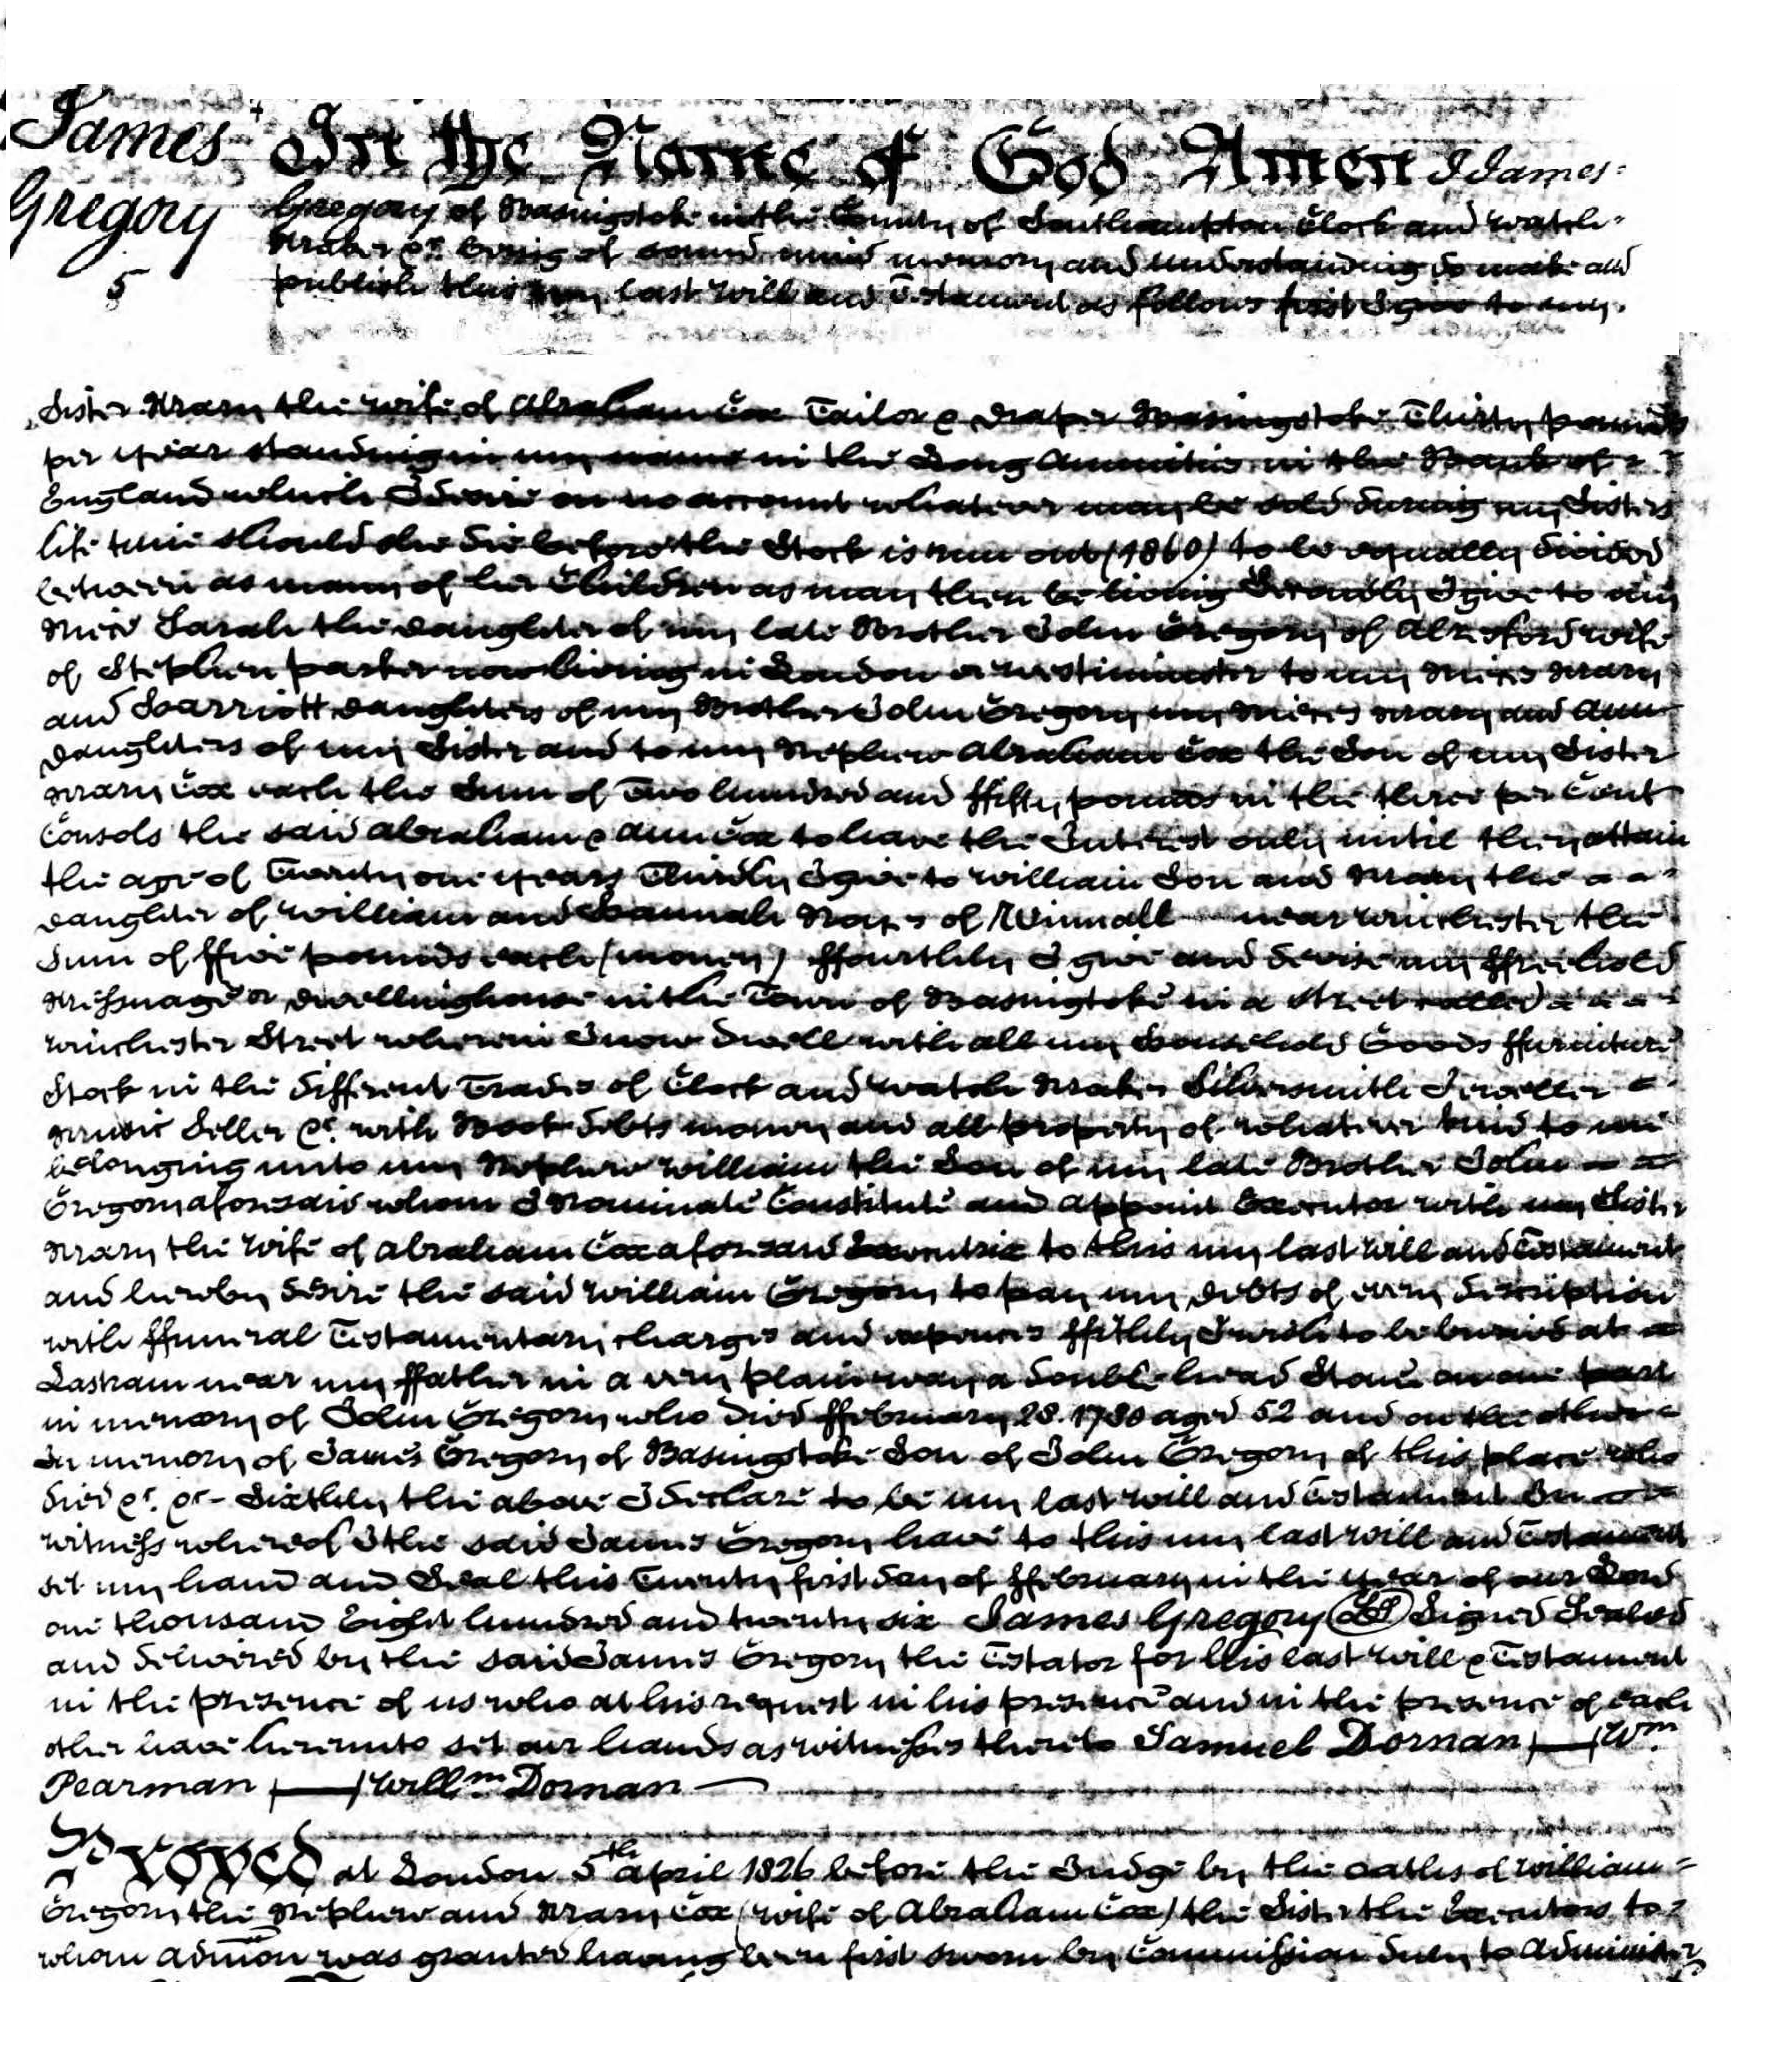 James
Gregory
5
In the Name of God Amen I James
Gregory of Basingstoke in the County of Southampton Clock and Watch
Maker &c. being of sound mind memory and understanding do make and
publish this my last Will and Testament as follows first I give to my
Sister Mary the wife of Abraham Cox Tailor & Draper Basingstoke Thirty pounds
per year standing in my name in the Long Annuities in the Bank of
England which I desire on no account whatever may be sold during my Sisters
life time should she die before the Stock is run out (1860) to be equally divided
between as many of her Children as may then be living Secondly I give to my
Niece Sarah the Daughter of my late Brother John Gregory of Alresford wife
of Stephen parker now living in London or westminster to my Nieces Mary
and Harriott Daughters of my Brother John Gregory my Nieces Mary and Ann
Daughters of my Sister and to my Nephew Abraham Cox the Son of my Sister
Mary Cox each the Sum of Two hundred and ffifty pounds in the three per Cent
Consols the said Abraham & Ann Cox to have the Interest only until they attain
the age of Twenty one years Thirdly I give to William Son and Mary the
Daughter of William and Hannah Noyes of Winnall near Winchester the
Sum of ffive pounds each (money) ffourthly I give and devise my ffreehold
Messuage or dwellinghouse in the Town of Basingtoke in a street called
Winchester Street wherein I now dwell with all my Household Goods ffurniture
Stock in the different Trades of Clock and Watch Maker Silversmith Jeweller
Music Seller &c. with Book debts money and all property of whatever kind to me
belonging unto my Nephew William the Son of my late Brother John
Gregory aforesaid whom I Nominate Constitute and Appoint Executor with my Sister
Mary the Wife of Abraham Cox aforesaid Executrix to this my last will and Testament
and hereby desire the said William Gregory to pay my debts of every discription
with ffuneral Testamentary charges and expences ffifthly I wish to be buried at
Lasham near my ffather in a very plain way a double head Stone on one part
in memory of John Gregory who died ffebruary 28. 1780 aged 52 and on the other
In memory of James Gregory of Basingstoke Son of John Gregory of this place who
died &c. &c - Sixthly the above I declare to be my last will and Testament In
witness whereof I the said James Gregory have to this my last will and Testament
set my hand and Seal this Twenty first day of ffebruary in the year of our Lord
one thousand Eight hundred and twenty six James Gregory (LS) Signed Sealed
and delivered by the said James Gregory the Testator for his last Will & Testament
in the presence of us who at his request in his presence and in the presence of each
other have hereunto set our hands as witnesses thereto Samuel Dornan — Wm
Pearman — Willm. Dornan —
Proved at London 5th April 1826 before the Judge by the oaths of William
Gregory the Nephew and Mary Cox (wife of Abraham Cox) the Sister the Executors to
whom admon was granted having been first sworn by Commission duly to administer